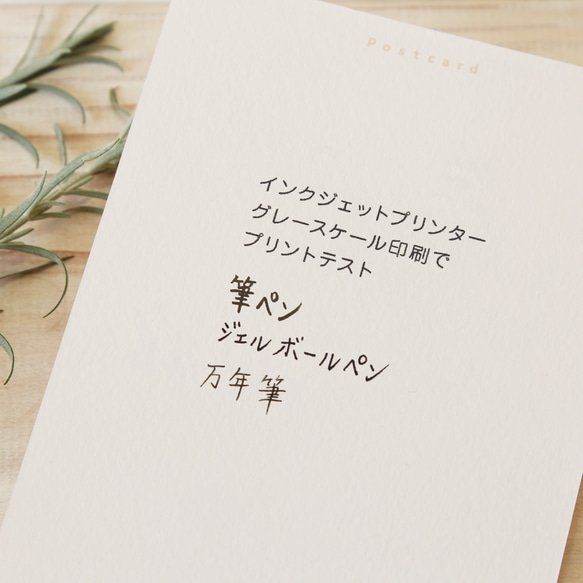 Postcard
インクジェットプリンター
グレースケール印刷で
プリントテスト
筆ペン
ジェルボールペン
万年筆